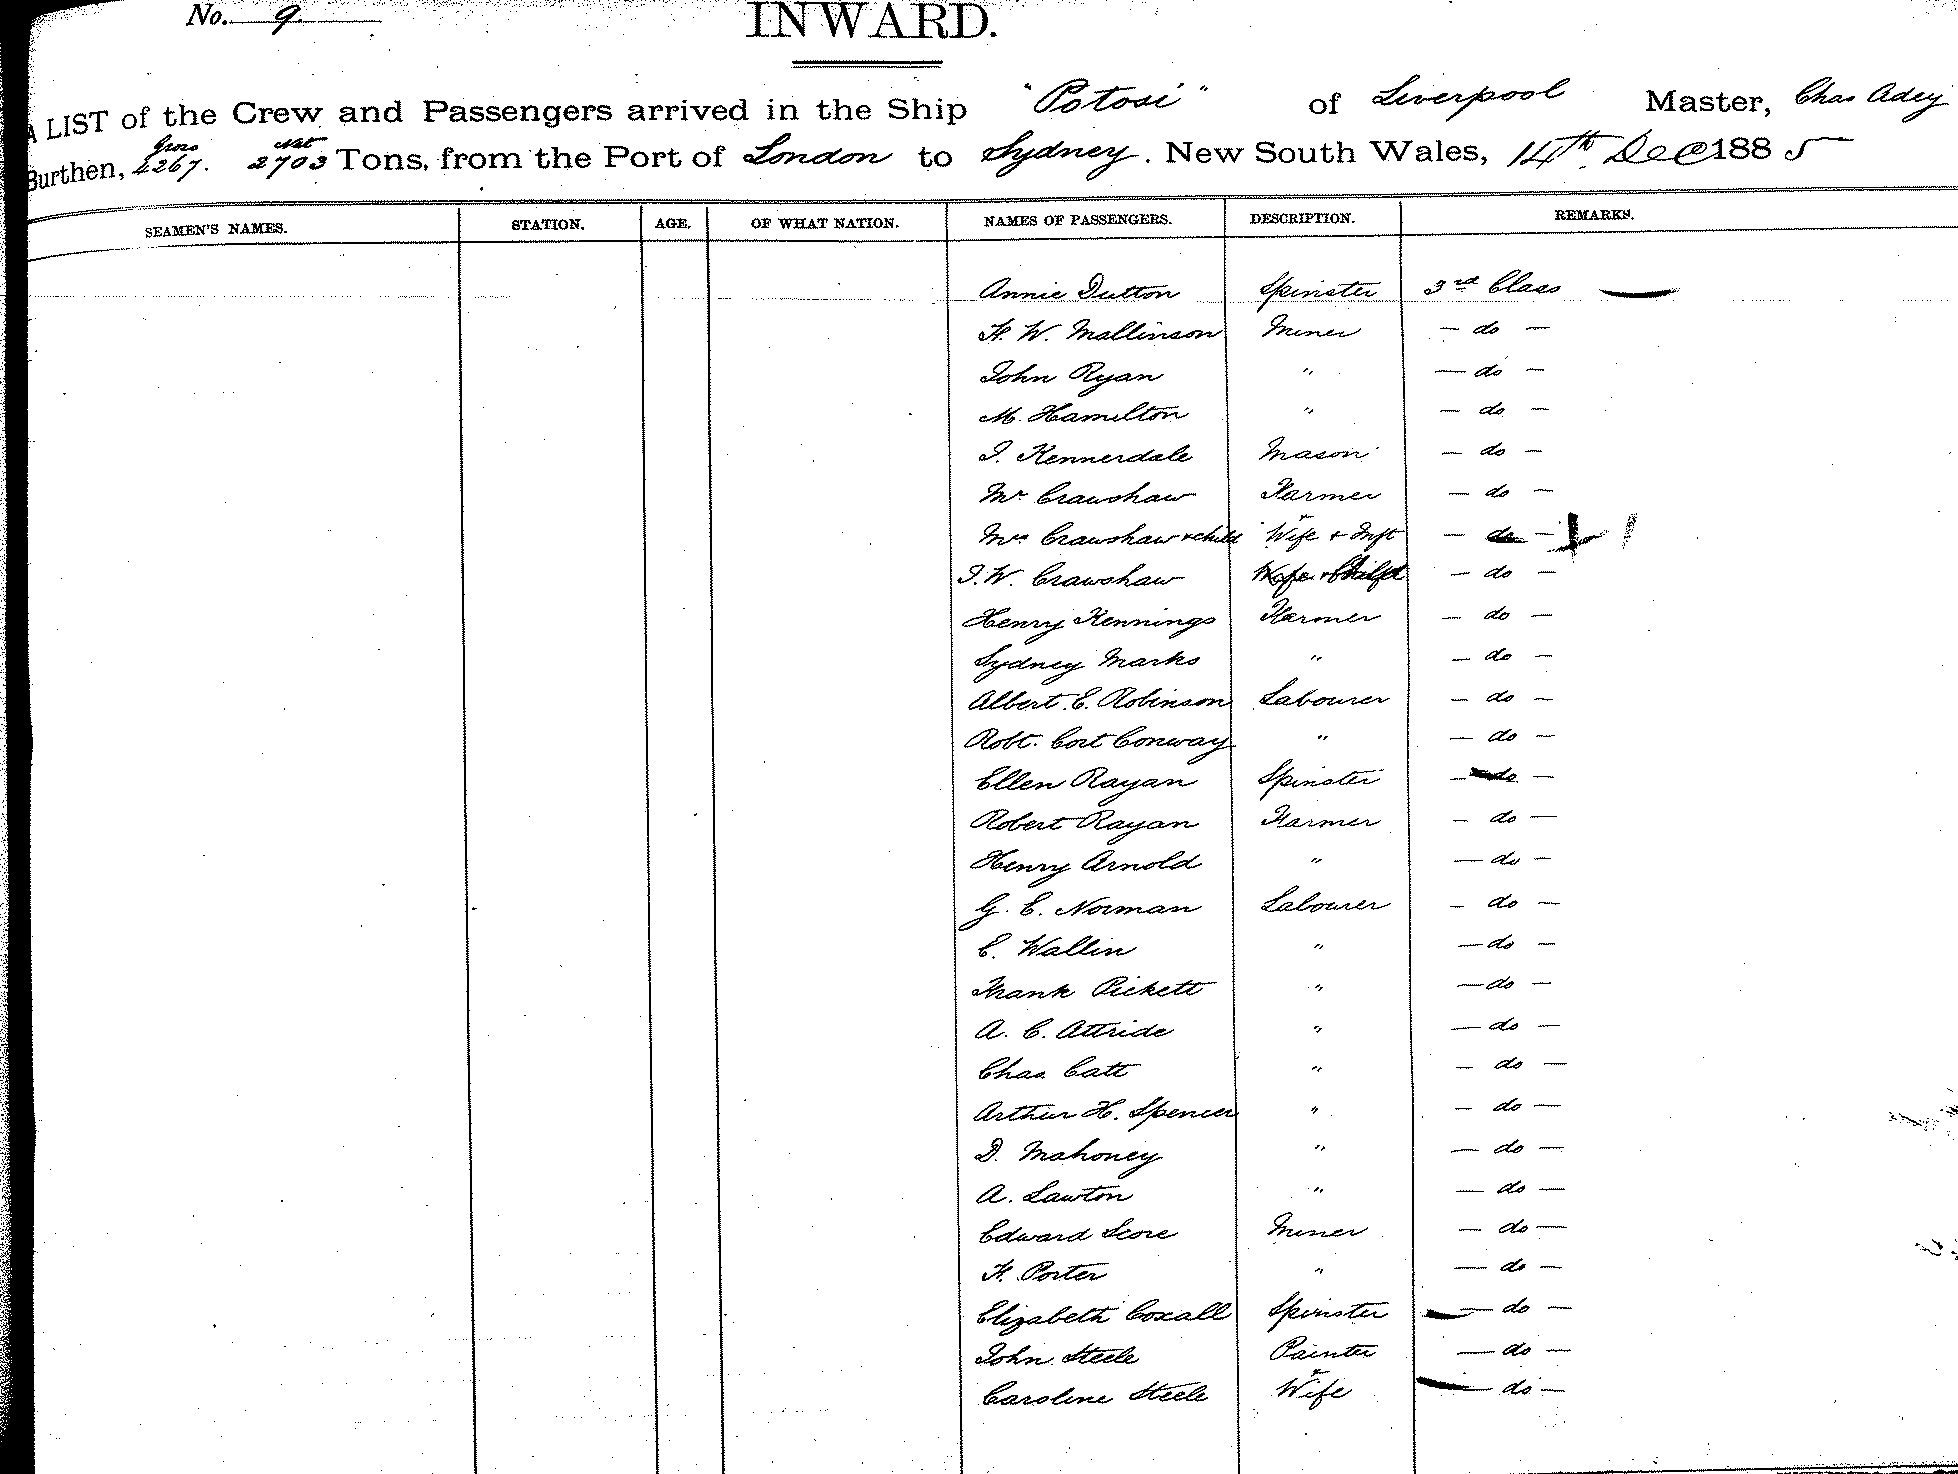 No. 9
INWARD.
A LIST of the Crew and Passengers arrived in the Ship "Potosi" of Liverpool Master, Chas Adey
Gross Nett
Burthen, 4267. 2703 Tons, from the Port of London to Sydney. New South Wales, 14th Dec 1885
SEAMEN'S NAMES. STATION. AGE. OF WHAT NATION. NAMES OF PASSENGERS. DESCRIPTION. REMARKS.
Annie Dutton Spinster 3rd Class —
H. W. Mallinson Miner — do —
John Ryan " — do —
M. Hamilton " — do —
J. Kennerdale Mason — do —
Mr Crawshaw Farmer — do —
Mrs Crawshaw + child Wife + Inft — do —
J. W. Crawshaw — do —
Henry Hennings Farmer — do —
Sydney Marks " — do —
Albert. E. Robinson Labourer — do —
Robt. Cort Conway " — do —
Ellen Rayan Spinster — do —
Robert Rayan Farmer — do —
Henry Arnold " — do —
G. E. Norman Labourer — do —
E. Wallin " — do —
Frank Pickett " — do —
A. C. Attride " — do —
Chas. Catt " — do —
Arthur H. Spencer " — do —
D. Mahoney " — do —
A. Lawton " — do —
Edward Score Miner — do —
H. Porter " — do —
Elizabeth Coxall Spinster — do —
John Steele Painter — do —
Caroline Steele Wife — do —